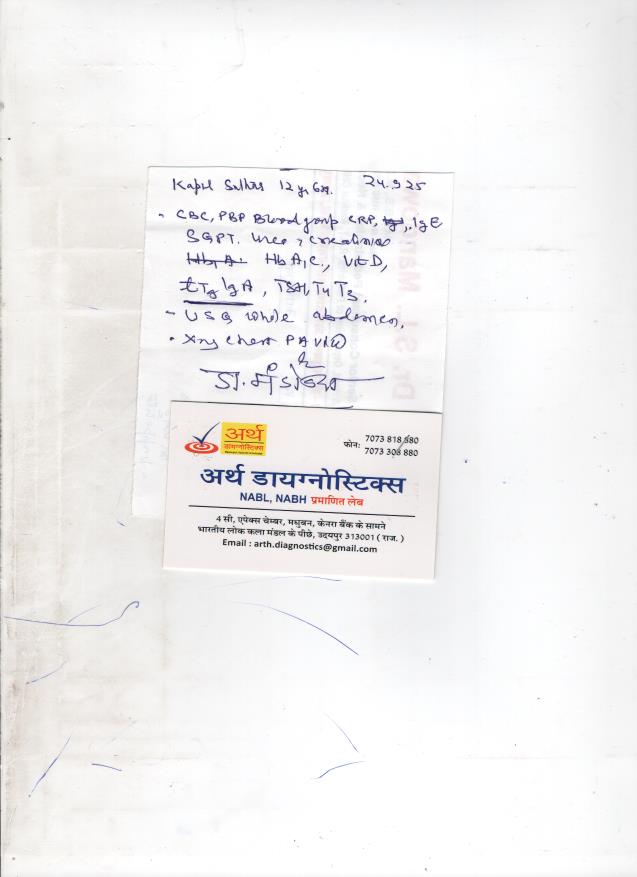 Kapil Suthar 12 yr 6m. 24.9.25
- CBC, PBF Blood group CRP, IgE
SGPT. Urea, creatinine
HbA1C., Vit D,
tTg IgA, TSH, T4 T3.
- USG whole abdomen.
- Xray chest PA view
डा.
अर्थ
डायग्नोस्टिक्स
फोन: 7073 818 880
7073 308 880
अर्थ डायग्नोस्टिक्स
NABL, NABH प्रमाणित लेब
4 सी, एपेक्स चेम्बर, मधुबन, केनरा बैंक के सामने
भारतीय लोक कला मंडल के पीछे, उदयपुर 313001 ( राज. )
Email : arth.diagnostics@gmail.com